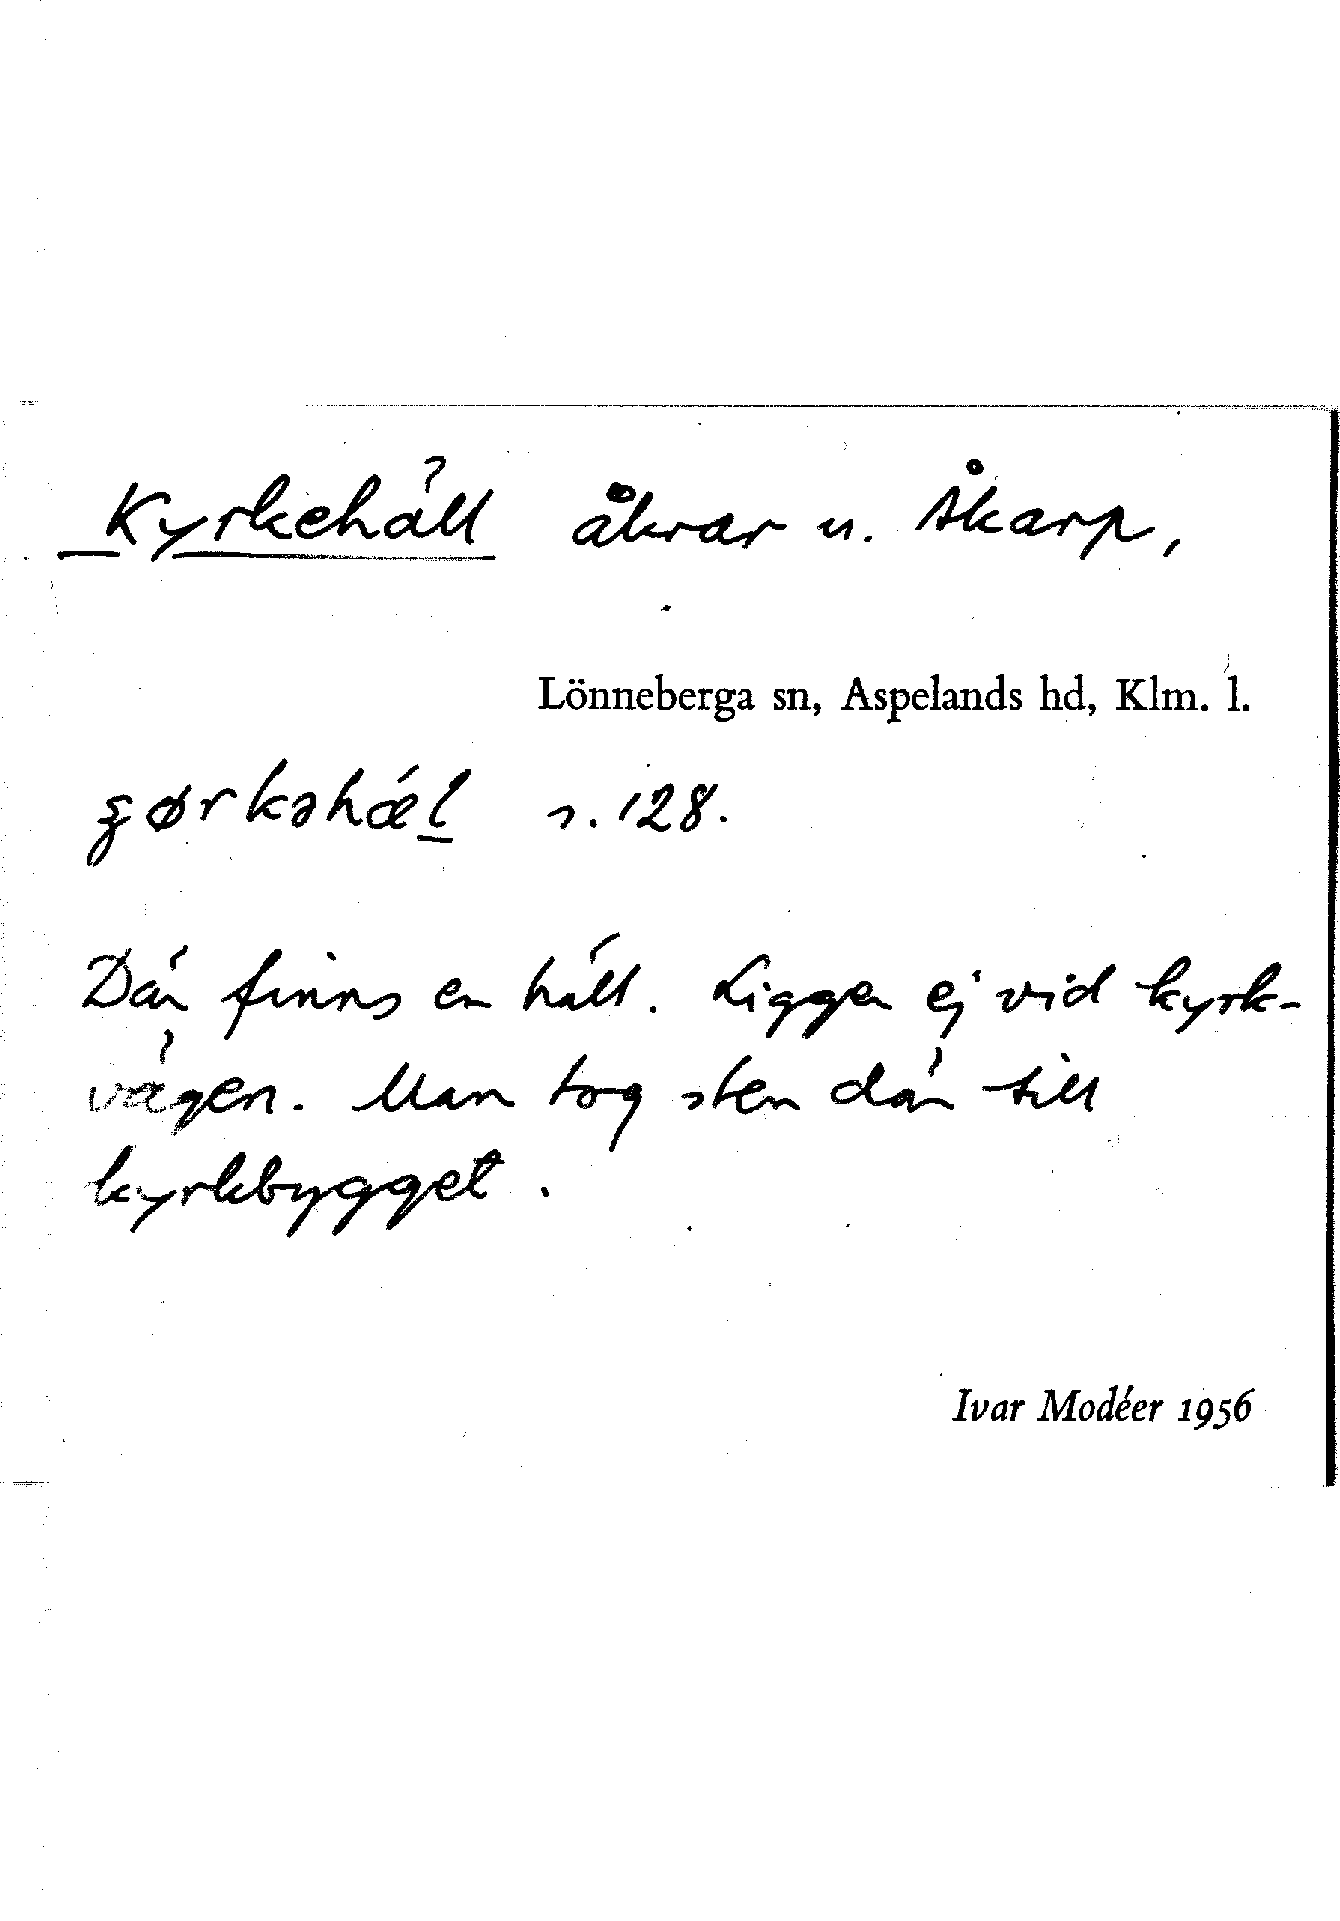 Kyrkehäll åkrar u. Åkarp,
Lönneberga sn, Aspelands hd, Klm. l.
s. 128.
Där finns en häll. Ligger ej vid kyrk-
vägen. Man tog sten där till
kyrkbygget.
Ivar Modéer 1956